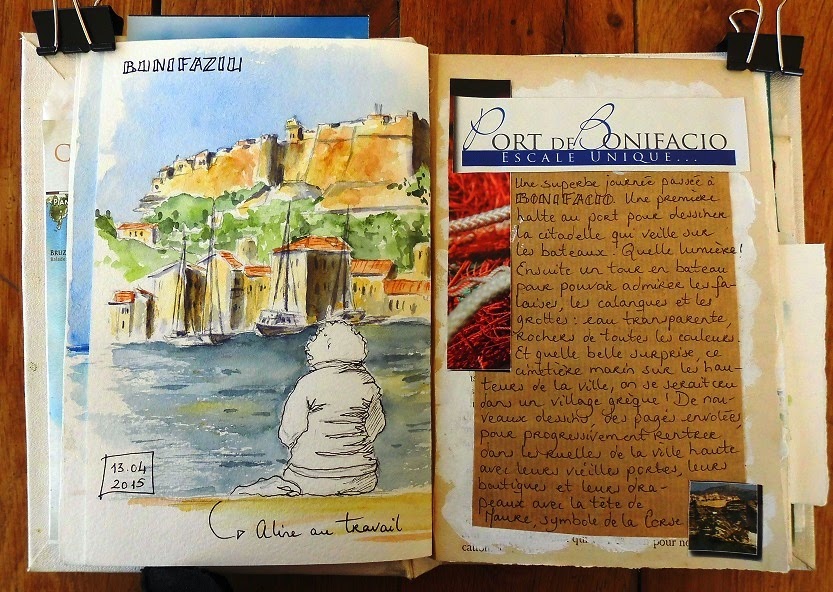 BUNIFAZIU
13.04
2015
Aline au travail
PORT DE BONIFACIO
ESCALE UNIQUE...
Une superbe journée passée à
BONIFACIO. Une première
halte au port pour dessiner
la citadelle qui veille sur
les bateaux. Quelle lumière!
Ensuite un tour en bateau
pour pouvoir admirer les fa-
laises, les calanques et les
grottes: eau transparente,
Rochers de toutes les couleurs.
Et quelle belle surprise, ce
cimetière marin sur les hau-
teurs de la ville, on se serait cru
dans un village grecque! De nou-
veaux dessins, des pages envolées
pour progressivement rentrer
dans les ruelles de la ville haute
avec leurs vieilles portes, leurs
boutiques et leurs dra-
peaux avec la tête de
Maure, symbole de la Corse
qui